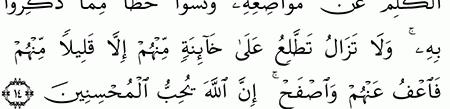 ٱلْكَلِمَ عَن مَّوَاضِعِهِۦ وَنَسُوا۟ حَظًّا مِّمَّا ذُكِّرُوا۟
بِهِۦ ۚ وَلَا تَزَالُ تَطَّلِعُ عَلَىٰ خَآئِنَةٍ مِّنْهُمْ إِلَّا قَلِيلًا مِّنْهُمْ
فَٱعْفُ عَنْهُمْ وَٱصْفَحْ ۚ إِنَّ ٱللَّهَ يُحِبُّ ٱلْمُحْسِنِينَ ﴿١٤﴾